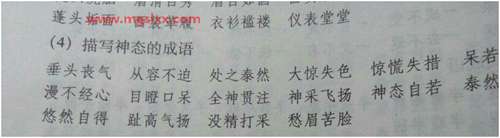 蓬头垢面 衣衫褴褛 仪表堂堂
(4) 描写神态的成语
垂头丧气 从容不迫 处之泰然 大惊失色 惊慌失措 呆若
漫不经心 目瞪口呆 全神贯注 神采飞扬 神态自若 泰然
悠然自得 趾高气扬 没精打采 愁眉苦脸